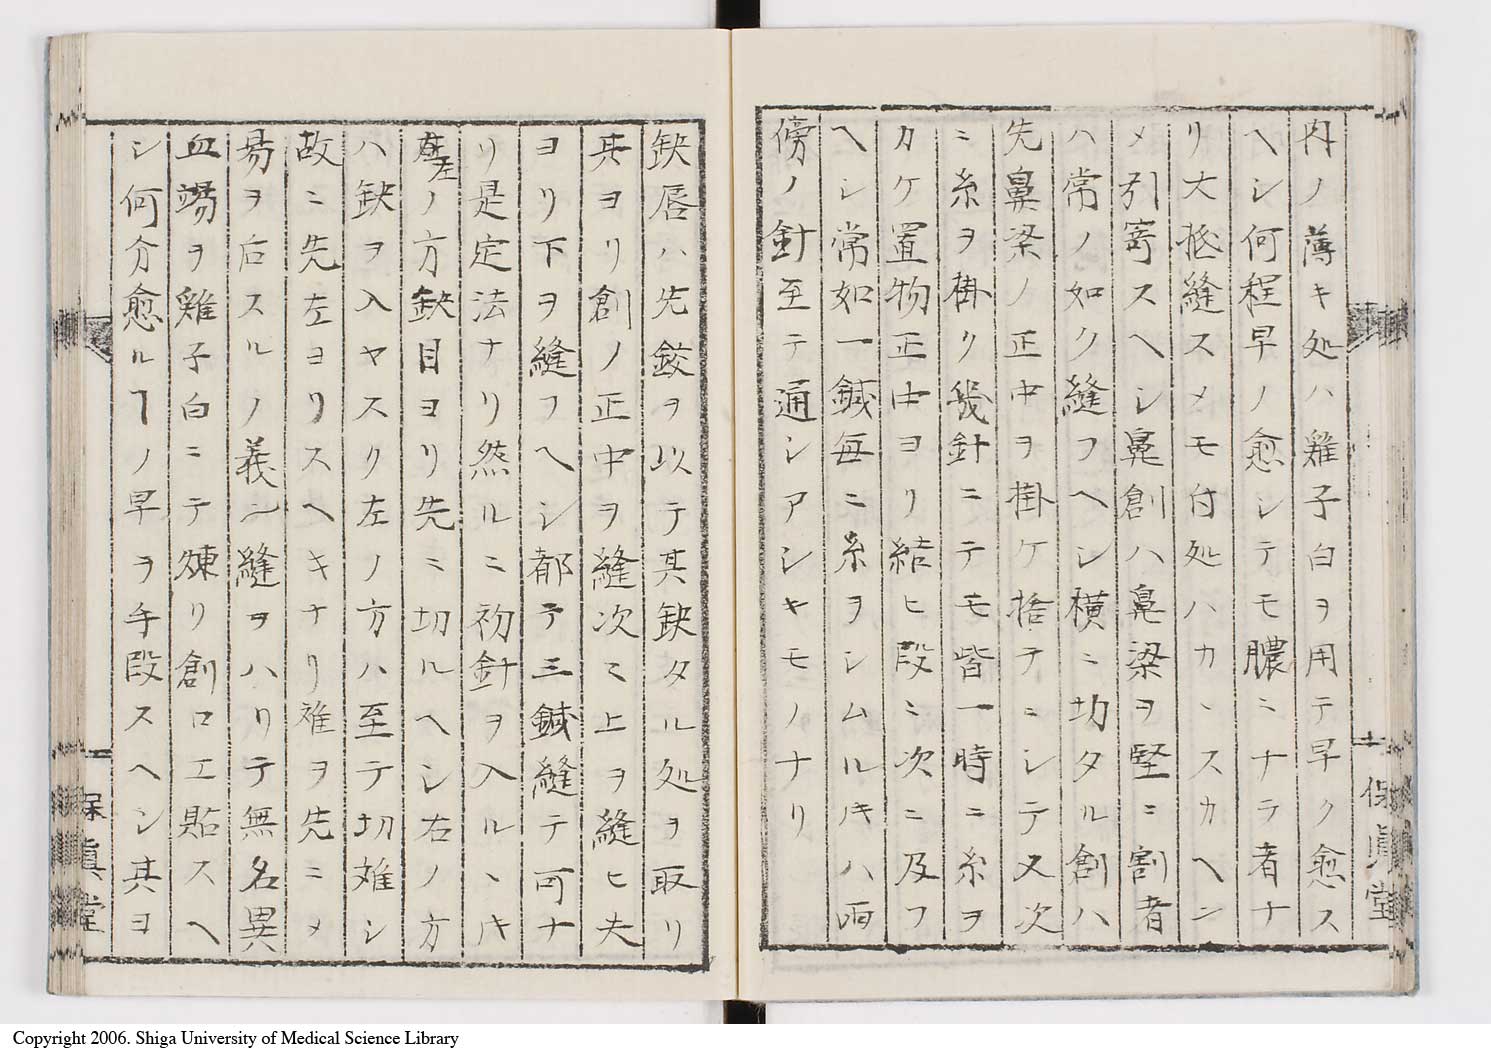 内ノ薄キ処ハ雞子白ヲ用テ早ク愈ス
ヘシ何程早ノ愈シテモ膿ニナテ者ナ
リ大抵縫スメモ付処ハカヽスカヘシ
メ引寄スヘシ鼻創ハ鼻梁ヲ堅ニ割者
ハ常ノ如ク縫フヘシ横ニ切タル創ハ
先鼻梁ノ正中ヲ掛ケ捨テニシテ又次
ニ糸ヲ掛ク幾針ニテモ皆一時ニ糸ヲ
カケ置物正中ヨリ結ヒ段ミ次ニ及フ
ヘシ常如一鍼毎ニ糸ヲシムル𪜈ハ両
傍ノ針至テ通シアシキモノナリ
保眞堂
缺唇ハ先鋏ヲ以テ其缺タル処ヲ取リ
其ヨリ創ノ正中ヲ縫次ニ上ヲ縫ヒ夫
ヨリ下ヲ縫フヘシ都テ三鍼縫テ可ナ
リ是定法ナリ然ルニ初針ヲ入ルヽキ
左ノ方缺目ヨリ先ミ切ルヘシ右ノ方
ハ鋏ヲ入ヤスク左ノ方ハ至テ切難シ
故ニ先左ヨリスヘキナリ難ヲ先ニメ
易ヲ后スルノ義ニ縫ヲハリテ無名異
血竭ヲ雞子白ニテ煉リ創口エ貼スヘ
シ何分愈ルヿノ早ヲ手段スヘシ其ヨ
保眞堂
Copyright 2006. Shiga University of Medical Science Library